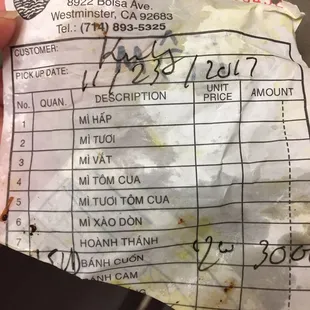 8922 Bolsa Ave.
Westminster, CA 92683
Tel.: (714) 893-5325
CUSTOMER:
PICK UP DATE: 11/23/2017
No. QUAN. DESCRIPTION UNIT PRICE AMOUNT
1 MÌ HẤP
2 MÌ TƯƠI
3 MÌ VẮT
4 MÌ TÔM CUA
5 MÌ TƯƠI TÔM CUA
6 MÌ XÀO DÒN
7 HOÀNH THÁNH
BÁNH CUỐN
BÁNH CAM